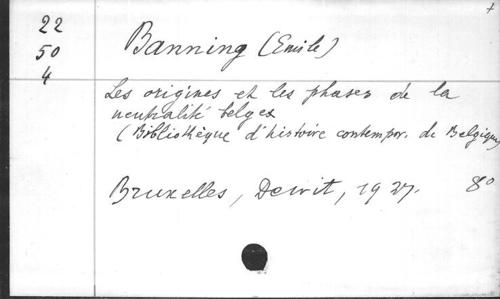 22
50
4
Banning (Emile)
Les origines et les phases de la
neutralité belge
(Bibliothèque d'histoire contempor. de Belgique)
Bruxelles, Dewit, 1927. 8°